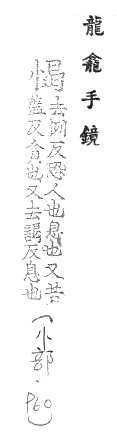 龍龕手鏡
愒去例反恐人也息也又苦
蓋反貪也又去謁反息也
(忄部·P60)